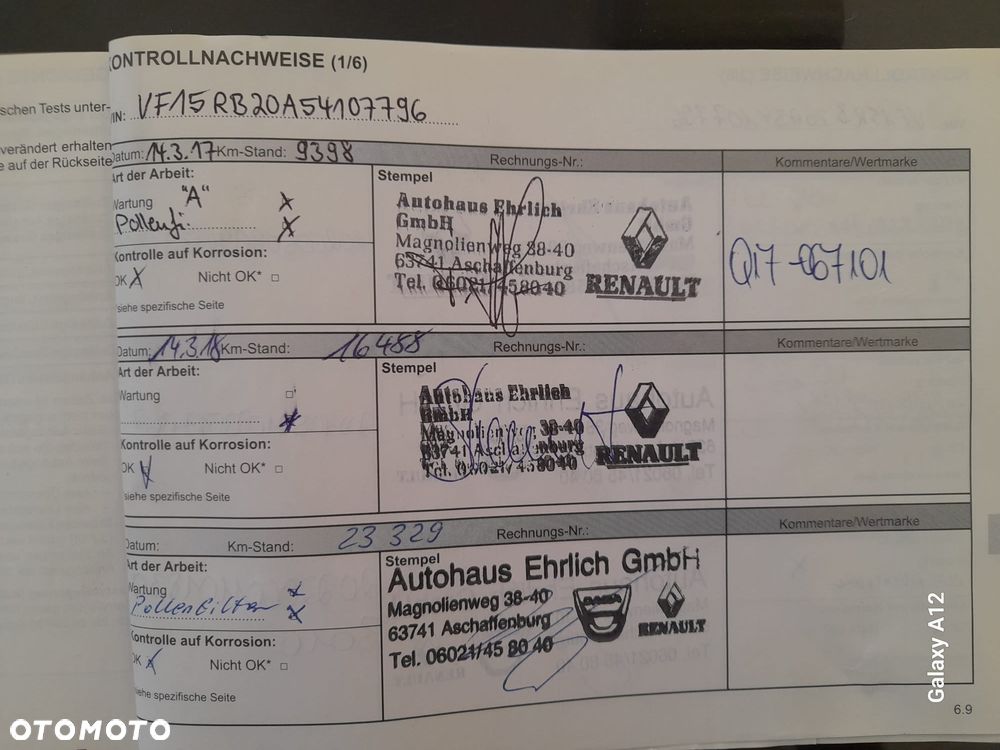 KONTROLLNACHWEISE (1/6)
schen Tests unter-
verändert erhalten
e auf der Rückseite
VIN: VF15RB20A54107796
Datum: 14.3.17 Km-Stand: 9398 Rechnungs-Nr.: Kommentare/Wertmarke
Art der Arbeit:
Wartung "A" X
Pollenfi: X
Kontrolle auf Korrosion:
OK X Nicht OK* □
*siehe spezifische Seite
Stempel
Autohaus Ehrlich
GmbH
Magnolienweg 38-40
63741 Aschaffenburg
Tel. 06021/45 80 40
RENAULT
Q17-067101
Datum: 14.3.18 Km-Stand: 16488 Rechnungs-Nr.: Kommentare/Wertmarke
Art der Arbeit:
Wartung □
Kontrolle auf Korrosion:
OK Nicht OK* □
*siehe spezifische Seite
Stempel
Autohaus Ehrlich
GmbH
Magnolienweg 38-40
63741 Aschaffenburg
Tel. 06021/45 80 40
RENAULT
Datum: Km-Stand: 23 329 Rechnungs-Nr.: Kommentare/Wertmarke
Art der Arbeit:
Wartung X
Pollenfilter X
Kontrolle auf Korrosion:
OK X Nicht OK* □
*siehe spezifische Seite
Stempel
Autohaus Ehrlich GmbH
Magnolienweg 38-40
63741 Aschaffenburg
Tel. 06021/45 80 40
DACIA
RENAULT
6.9
Galaxy A12
OTOMOTO